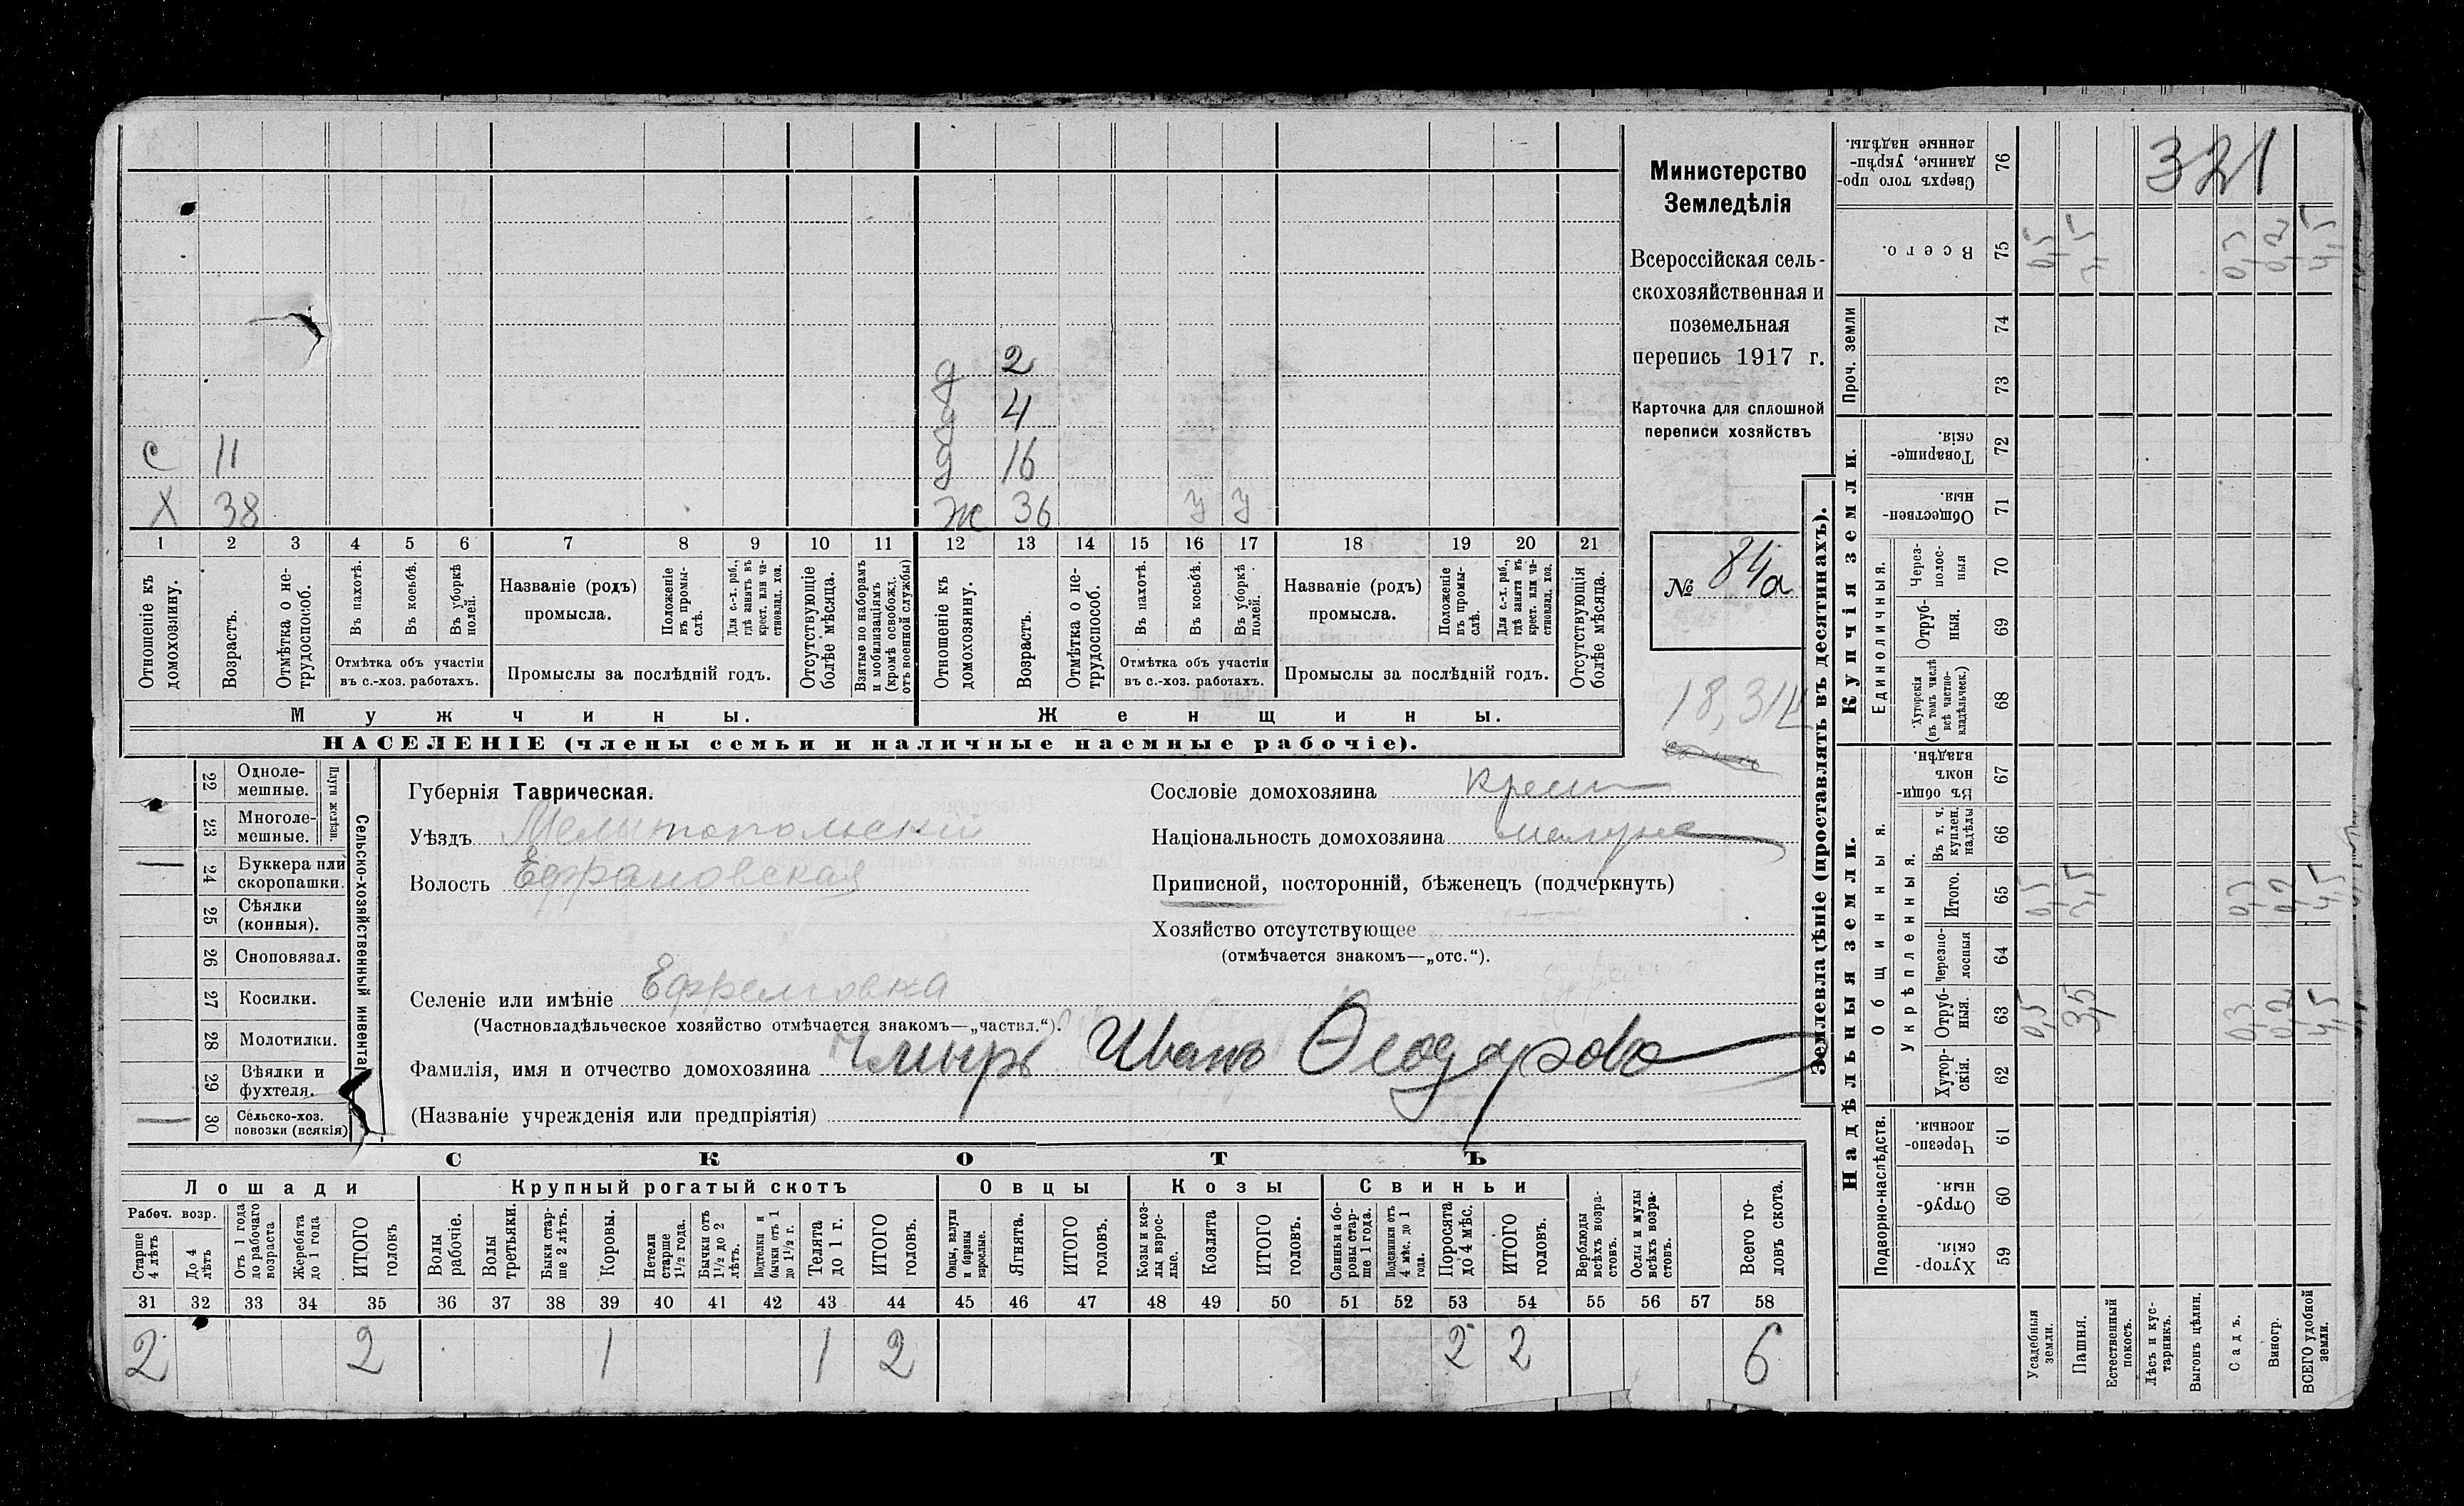 Министерство
Земледѣлія
Всероссійская сель-
скохозяйственная и
поземельная
перепись 1917 г.
Карточка для сплошной
переписи хозяйствъ
№ 84а
18,314
321
д 2
д 4
с 11 д 16
Х 38 ж 36 У У
1 2 3 4 5 6 7 8 9 10 11 12 13 14 15 16 17 18 19 20 21
Отношеніе къ домохозяину.
Возрастъ.
Отмѣтка о не-трудоспособ.
Въ пахотѣ.
Въ косьбѣ.
Въ уборкѣ полей.
Отмѣтка объ участіи
въ с.-хоз. работахъ.
Названіе (родъ)
промысла.
Положеніе въ промы-слѣ.
Для с.-х. раб., гдѣ занятъ въ крест. или ча-стновлад. хоз.
Промыслы за послѣдній годъ.
Отсутствующіе болѣе мѣсяца.
Взятые по наборамъ и мобилизаціямъ (кромѣ освобожд. отъ военной службы)
Отношеніе къ домохозяину.
Возрастъ.
Отмѣтка о не-трудоспособ.
Въ пахотѣ.
Въ косьбѣ.
Въ уборкѣ полей.
Отмѣтка объ участіи
въ с.-хоз. работахъ.
Названіе (родъ)
промысла.
Положеніе въ промы-слѣ.
Для с.-х. раб., гдѣ занята въ крест. или ча-стновлад. хоз.
Промыслы за послѣдній годъ.
Отсутствующія болѣе мѣсяца.
Мужчины. Женщины.
НАСЕЛЕНІЕ (члены семьи и наличные наемные рабочіе).
Сельско-хозяйственный инвентарь
Плуги желѣзн.
22 Одноле-мешные.
23 Многоле-мешные.
— 24 Буккера или скоропашки.
25 Сѣялки (конныя).
26 Сноповязал.
27 Косилки.
28 Молотилки.
29 Вѣялки и фухтеля.
— 30 Сельско-хоз. повозки (всякія)
Губернія Таврическая.
Уѣздъ Мелитопольскій
Волость
Селеніе или имѣніе Ефремовка
(Частновладѣльческое хозяйство отмѣчается знакомъ—„частвл.“).
Фамилія, имя и отчество домохозяина Чмырь Иванъ
(Названіе учрежденія или предпріятія)
Сословіе домохозяина крест
Національность домохозяина малорос
Приписной, посторонній, бѣженецъ (подчеркнуть)
Хозяйство отсутствующее
(отмѣчается знакомъ—„отс.“).
СКОТЪ
Лошади Крупный рогатый скотъ Овцы Козы Свиньи
Рабоч. возр.
Старше 4 лѣтъ
До 4 лѣтъ
Отъ 1 года до рабочаго возраста
Жеребята до 1 года
ИТОГО головъ
Волы рабочіе.
Волы третьяки.
Быки стар-ше 2 лѣтъ.
Коровы.
Нетели старше 1½ года.
Бычки отъ 1½ до 2 лѣтъ.
Подтелки и бычки отъ 1 до 1½ г.
Телята до 1 г.
ИТОГО головъ.
Овцы, валухи и бараны взрослые.
Ягнята.
ИТОГО головъ.
Козы и коз-лы взрос-лые.
Козлята
ИТОГО головъ.
Свиньи и бо-ровы стар-ше 1 года.
Подсвинки отъ 4 мѣс. до 1 года.
Поросята до 4 мѣс.
ИТОГО головъ.
Верблюды всѣхъ возра-стовъ.
Ослы и мулы всѣхъ возра-стовъ.
Всего го-ловъ скота.
31 32 33 34 35 36 37 38 39 40 41 42 43 44 45 46 47 48 49 50 51 52 53 54 55 56 57 58
2 2 1 1 2 2 2 6
Землевладѣніе (проставлять въ десятинахъ).
Купчія земли.
Надѣльныя земли.
Проч. земли
Единоличныя.
Общинныя.
Укрѣпленныя.
Подворно-наслѣдств.
Сверхъ того про-данные, укрѣп-ленные надѣлы. 76
Всего. 75 0,5 3,5 0,3 0,2 4,5
74
73
Товарище-скія. 72
Обществен-ныя 71
Через-полос-ныя 70
Отруб-ныя. 69
Хуторскія (въ томъ числѣ всѣ частно-владѣльческ.) 68
Въ общин-номъ владѣн. 67
Въ т. ч. куплен. надѣлы 66
Итого. 65 0,5 3,5 0,3 0,2 4,5
Черезпо-лосныя 64
Отруб-ныя. 63 0,5 3,5 0,3 0,2 4,5
Хутор-скія. 62
Черезпо-лосныя. 61
Отруб-ныя. 60
Хутор-скія. 59
Усадебныя земли.
Пашня.
Естественный покосъ.
Лѣсъ и кус-тарникъ.
Выгонъ цѣлин.
Садъ.
Виногр.
ВСЕГО удобной земли.